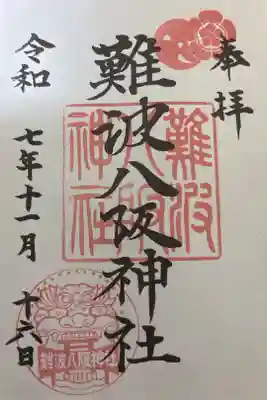 奉拝
難波八阪神社
難波八阪神社
令和
七年十一月
十六日
難波八阪神社